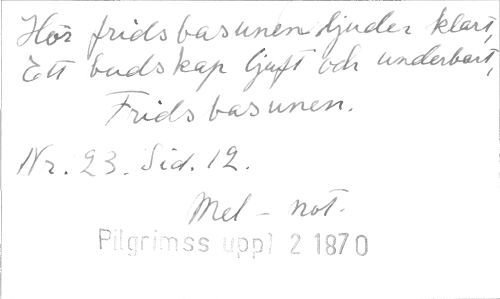 Hör fridsbasunen ljuder klart,
Ett budskap ljuft och underbart,
Fridsbasunen.
Nr. 23. Sid. 12.
Mel - not.
Pilgrimss uppl 2 1870